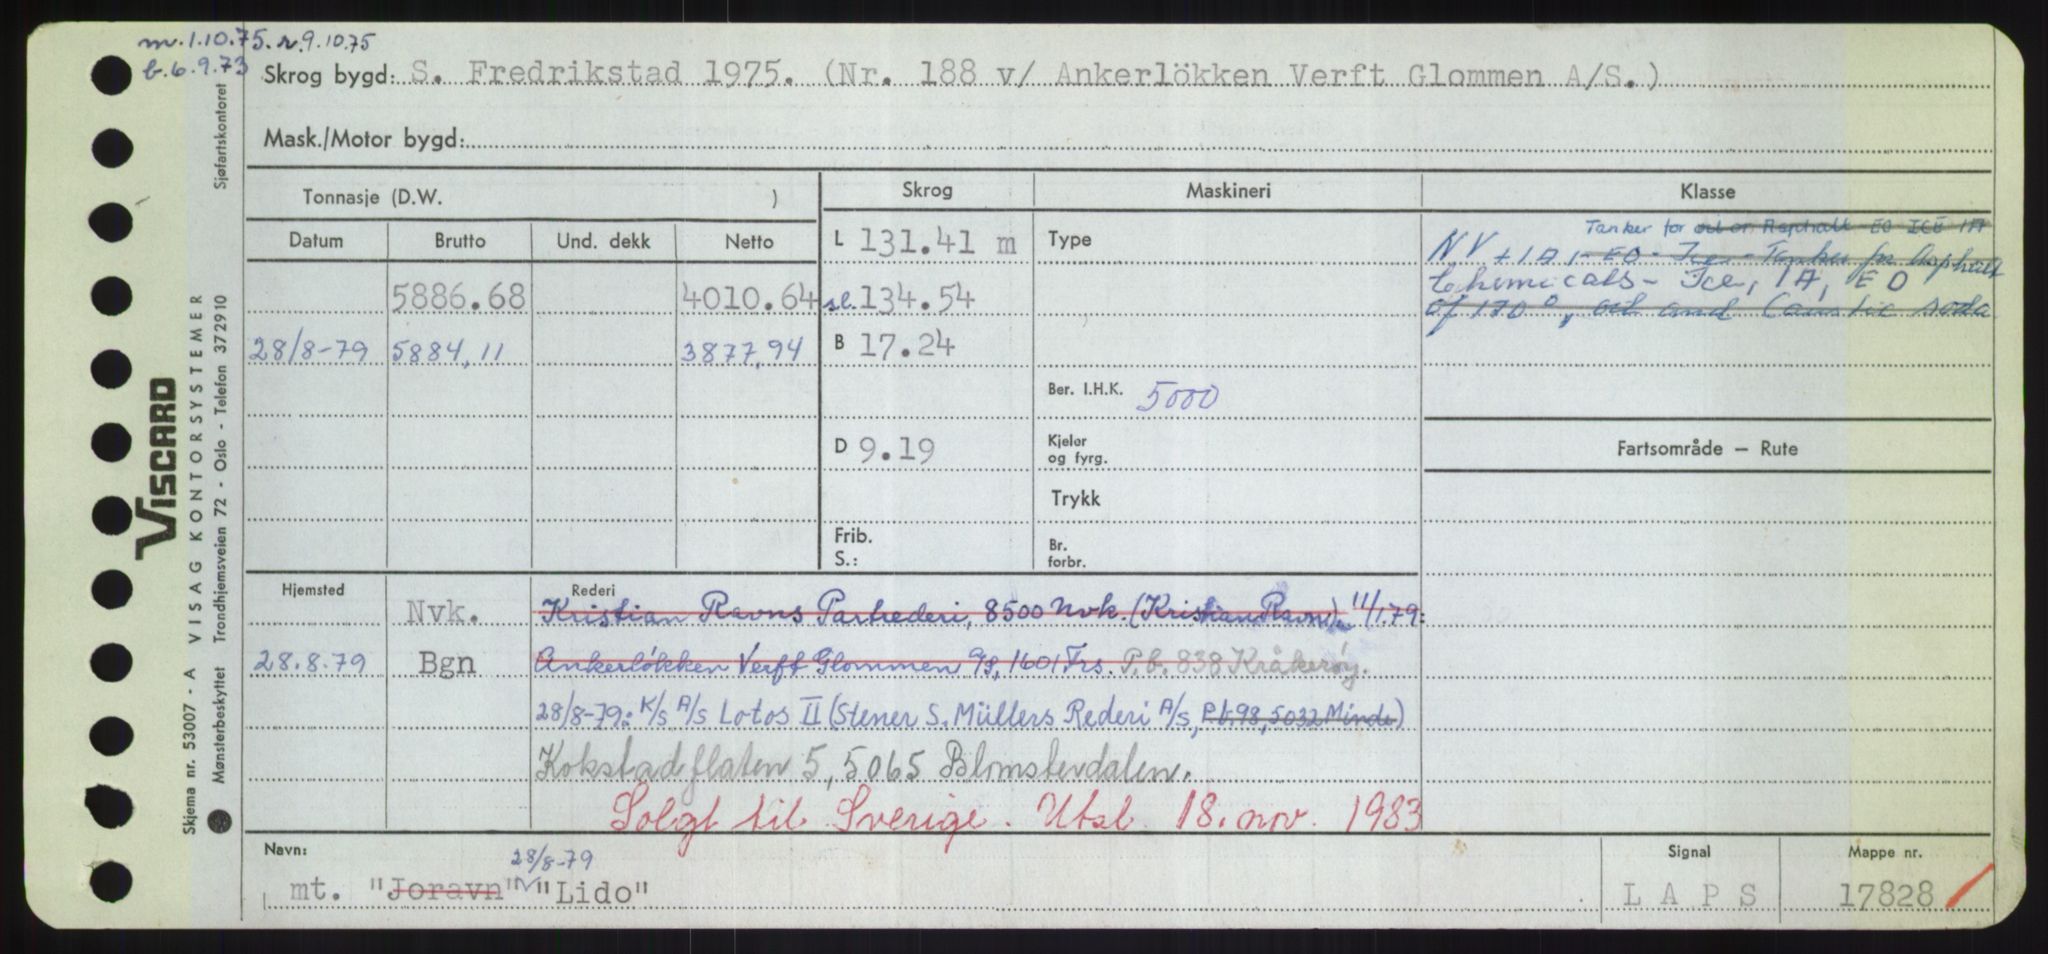 m. 1.10.75. r. 9.10.75
b. 6.9.73
Skrog bygd: S. Fredrikstad 1975. (Nr. 188 v/ Ankerlökken Verft Glommen A/S.)
Mask./Motor bygd:
Tonnasje (D.W. )
Skrog
Maskineri
Klasse
Datum Brutto Und. dekk Netto
L 131.41 m
Type
Tanker for oil or Asphalt EO ICE 1A
NV + 1A, - EO - Ice - Tanker for Asphalt
5886.68 4010.64
sl. 134.54
Chemicals - Ice, 1A, EO
of 170°, oil and Caustic soda
28/8-79 5884,11 3877,94
B 17.24
Ber. I.H.K. 5000
D 9.19
Kjeler
og fyrg.
Fartsområde — Rute
Trykk
Frib.
S.:
Br.
forbr.
Hjemsted
Rederi
Nvk. Kristian Ravns Partrederi, 8500 Nvk. (Kristian Ravn). 11/1.79:
28.8.79 Bgn Ankerløkken Verft Glommen A/S, 1601 Frs. P.b. 838 Kråkerøy.
28/8-79: K/S A/S Lotos II (Stener S. Müllers Rederi A/S, P.b. 98, 5032 Minde)
Kokstadflaten 5, 5065 Blomsterdalen.
Solgt til Sverige. Utsl. 18. nov. 1983
Navn:
28/8-79
mt. "Joravn" "Lido"
Signal
L A P S
Mappe nr.
17828
VISCARD
Skjema nr. 53007 - A VISAG KONTORSYSTEMER
Mønsterbeskyttet Trondhjemsveien 72 - Oslo - Telefon 37 29 10 Sjøfartskontoret